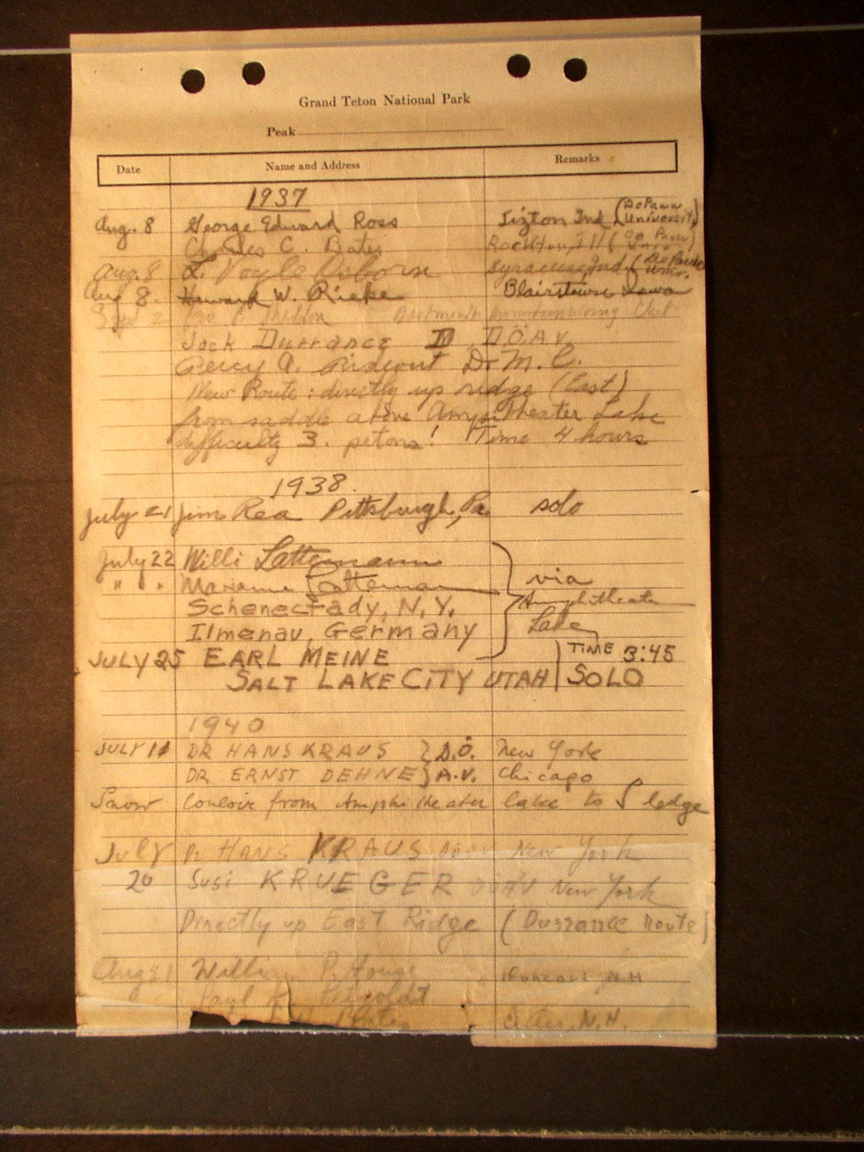 Grand Teton National Park
Peak
Date Name and Address Remarks
1937
Aug. 8 George Edward Ross Tipton Ind (DePauw University)
Charles C. Bates Rockton, Ill (De Pauw Univ.)
Aug. 8 L. Voyle Osborn Syracuse Ind (DePauw Univ.
Aug 8. Howard W. Rieke Blairstown Iowa
Sept 2 Dartmouth Mountaineering Club
Jack Durrance D.O.A.V.
Percy A. Rideout D. M. C.
New Route: directly up ridge (East)
from saddle above Ampitheater Lake
difficulty 3. petons! Time 4 hours
1938
July 21 Jim Rea Pittsburgh, Pa. solo
July 22 Willi Lattemann via
" " Marianne Lattemann Amphitheater
Schenectady, N.Y. Lake
Ilmenau, Germany
JULY 25 EARL MEINE TIME 3:45
SALT LAKE CITY UTAH SOLO
1940
JULY 11 DR HANS KRAUS } D.Ö. New York
DR ERNST DEHNE } A.V. Chicago
Snow Couloir from Amphitheater lake to S ledge
July Dr HANS KRAUS New York
20 Susi KRUEGER New York
Directly up East Ridge (Durrance Route)
Aug 31 William P. House Concord N.H.
Paul K. Petzoldt
N.H.